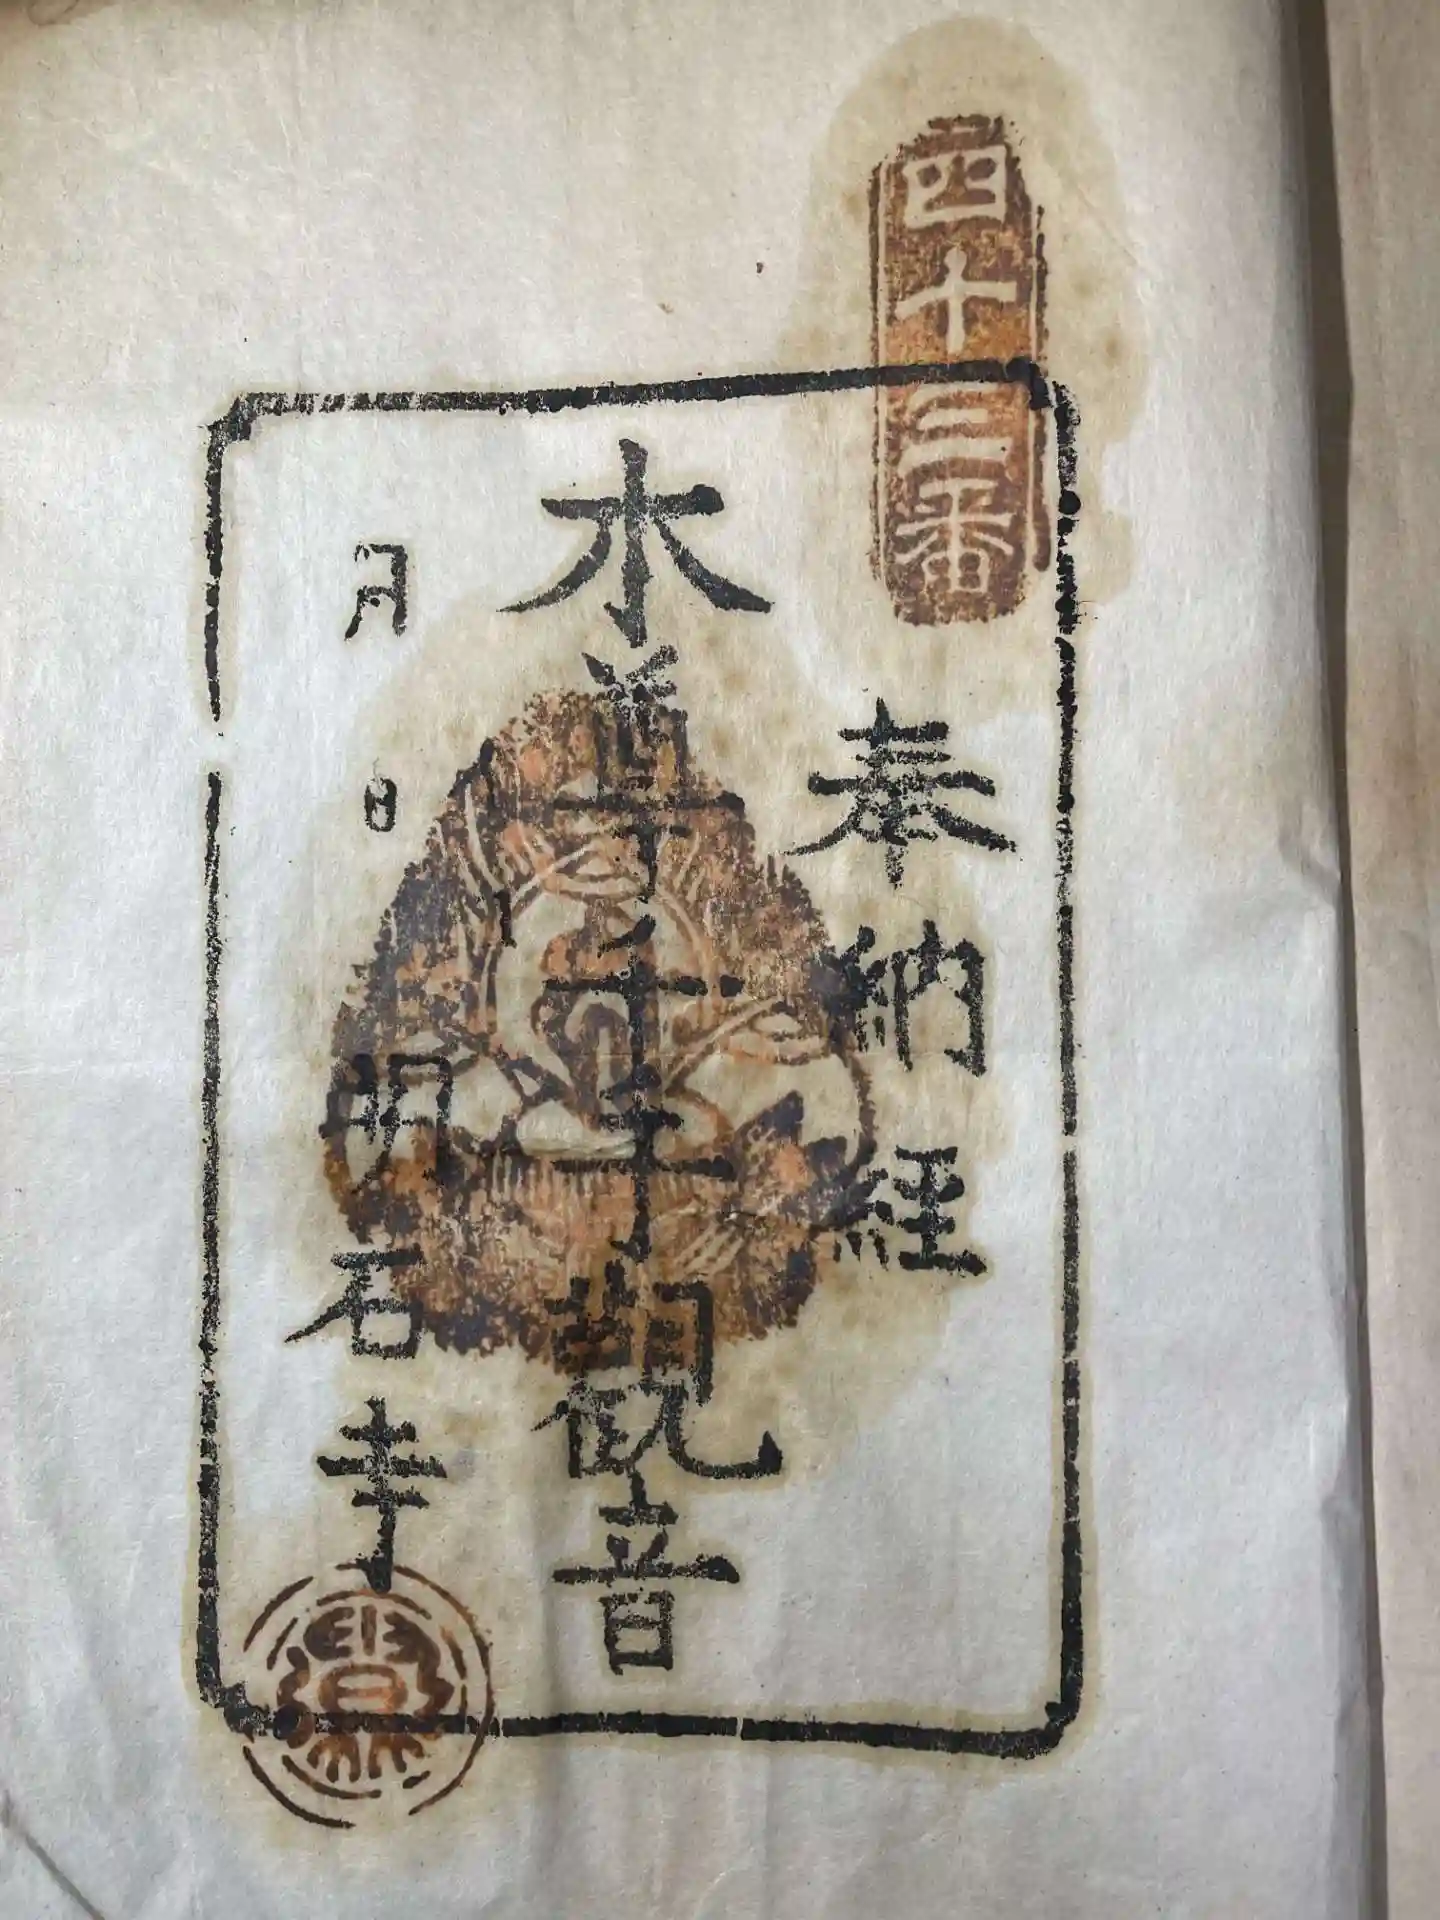 四十三番
奉納経
本尊千手観音
月日
明石寺